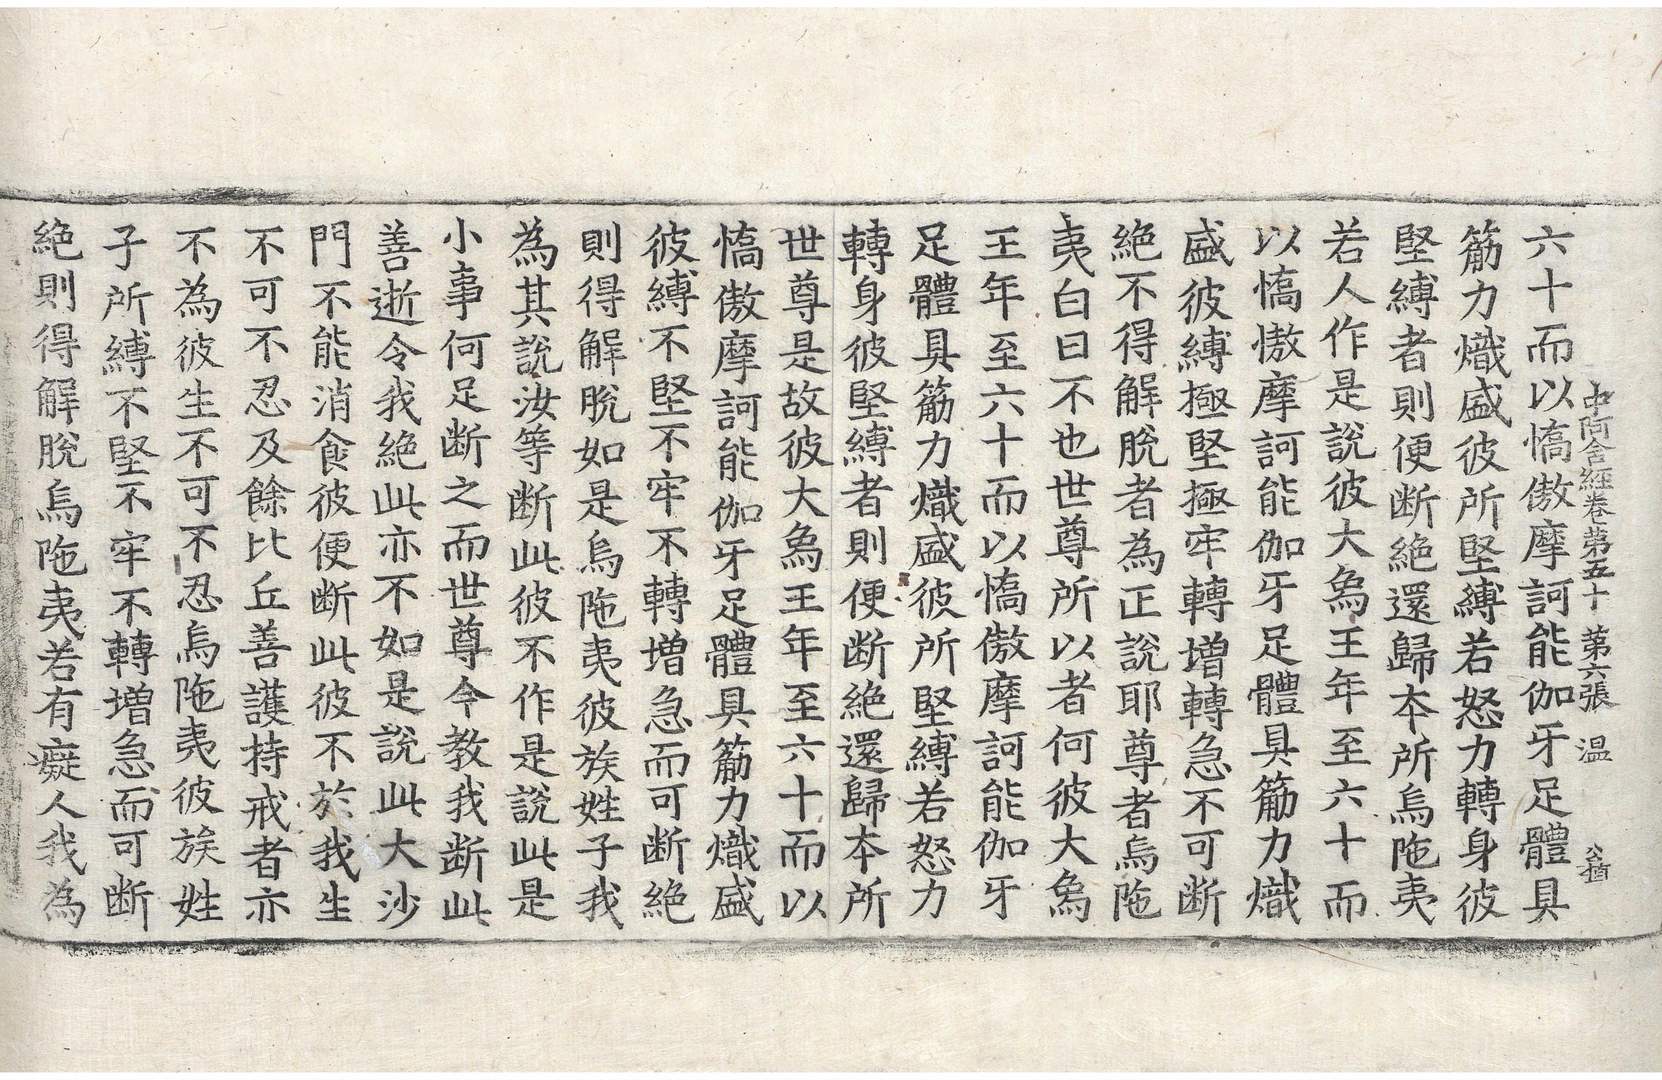 中阿含經卷第五十 第六張 温
六十而以憍傲摩訶能伽牙足體具
筋力熾盛彼所堅縛若怒力轉身彼
堅縛者則便断絶還歸本所烏陁夷
若人作是說彼大象王年至六十而
以憍慠摩訶能伽牙足體具筋力熾
盛彼縛極堅極牢轉増轉急不可断
絶不得解脫者為正說耶尊者烏陁
夷白曰不也世尊所以者何彼大象
王年至六十而以憍傲摩訶能伽牙
足體具筋力熾盛彼所堅縛若怒力
轉身彼堅縛者則便断絶還歸本所
世尊是故彼大象王年至六十而以
憍傲摩訶能伽牙足體具筋力熾盛
彼縛不堅不牢不轉増急而可断絶
則得解脫如是烏陁夷彼族姓子我
為其說汝等断此彼不作是說此是
小事何足断之而世尊今教我断此
善逝令我絶此亦不如是說此大沙
門不能消食彼便断此彼不於我生
不可不忍及餘比丘善護持戒者亦
不為彼生不可不忍烏陁夷彼族姓
子所縛不堅不牢不轉増急而可断
絶則得解脫烏陁夷若有癡人我為